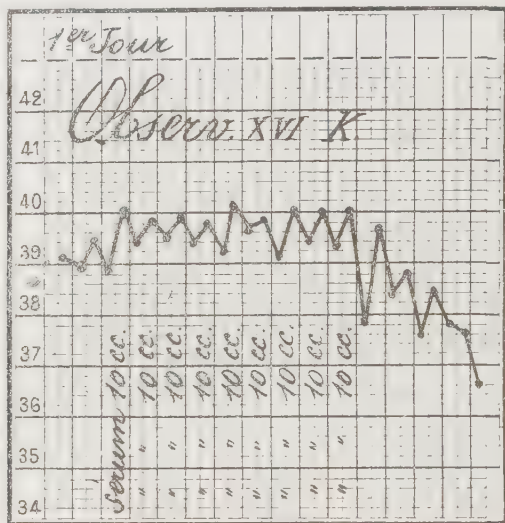 1er Jour
Observ. XVI K.
42
41
40
39
38
37
36
35
34
Serum 10 cc.
" 10 cc.
" 10 cc.
" 10 cc.
" 10 cc.
" 10 cc.
" 10 cc.
" 10 cc.
" 10 cc.